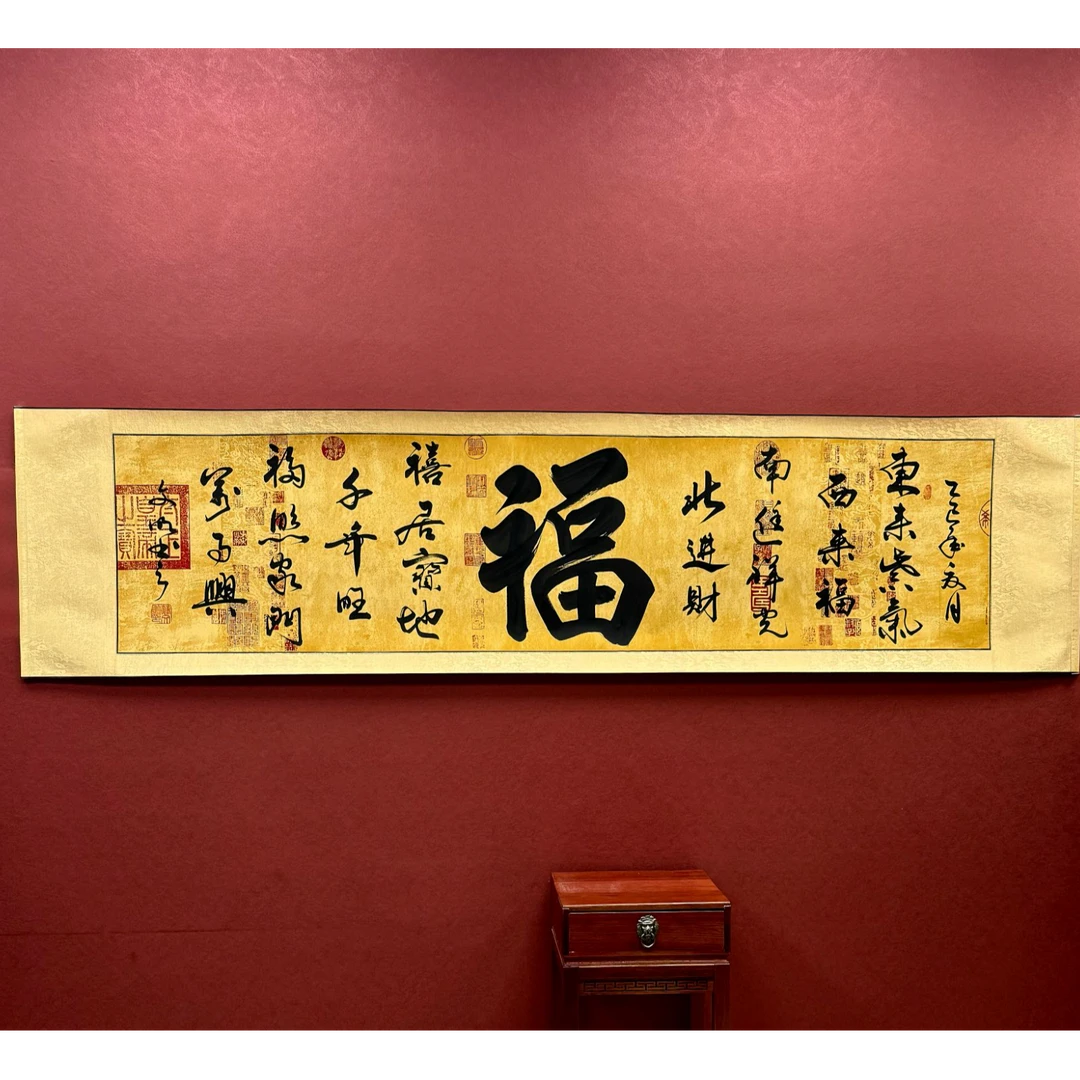 乙巳年夏月
東来紫氣
西来福
南進祥光
北進財
福
禧居寳地
千年旺
福照家門
萬事興